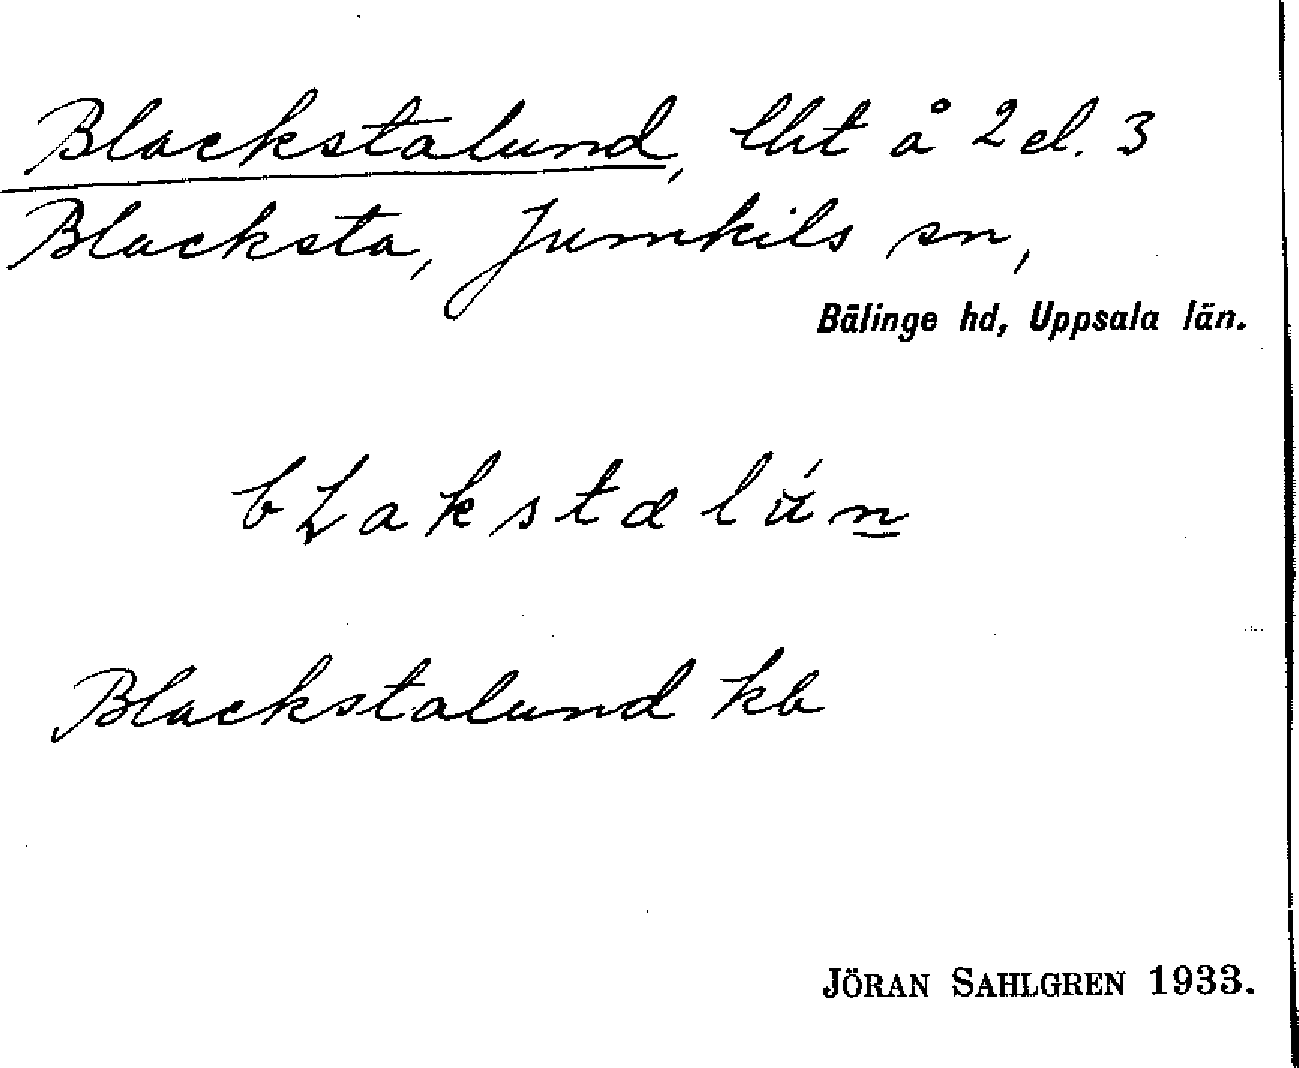 Blackstalund, lht å 2 el. 3
Blacksta, Jumkils sn,
Bälinge hd, Uppsala län.
bLakstalún
Blackstalund kb
JÖRAN SAHLGREN 1933.